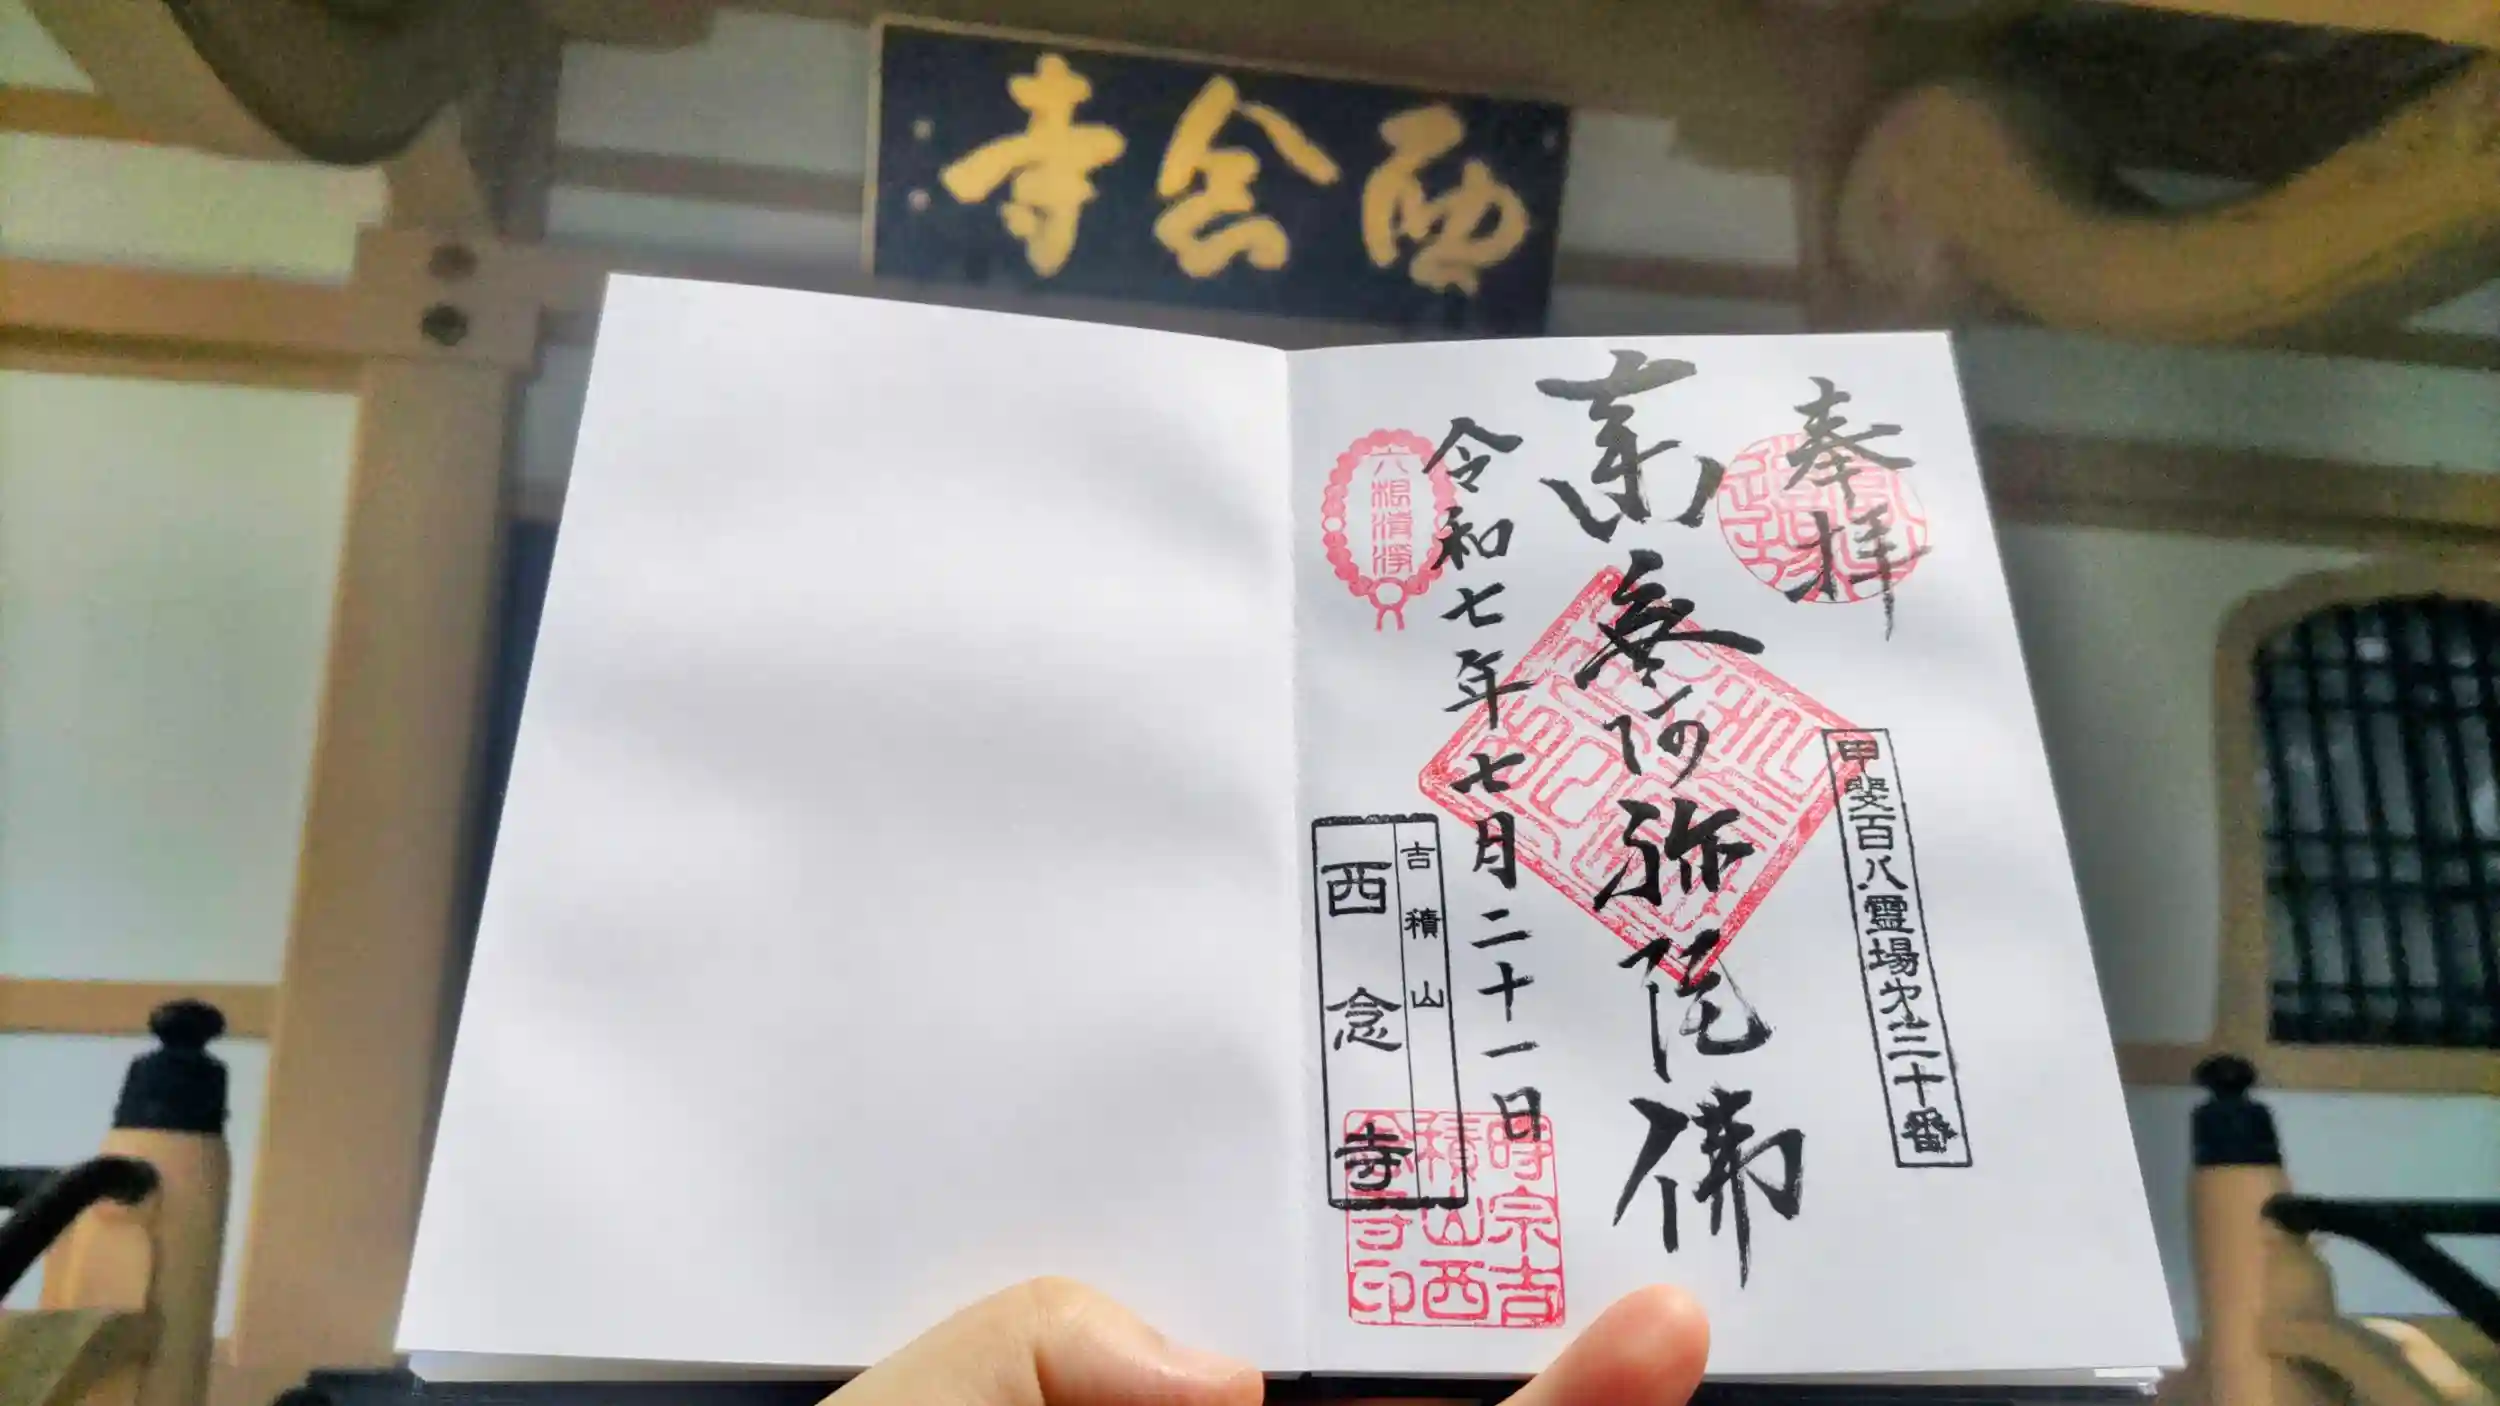 西念寺
奉拝
甲斐百八霊場第三十番
南無阿弥陀佛
令和七年七月二十一日
六根清浄
吉積山
西念寺
時宗吉
積山西
念寺印